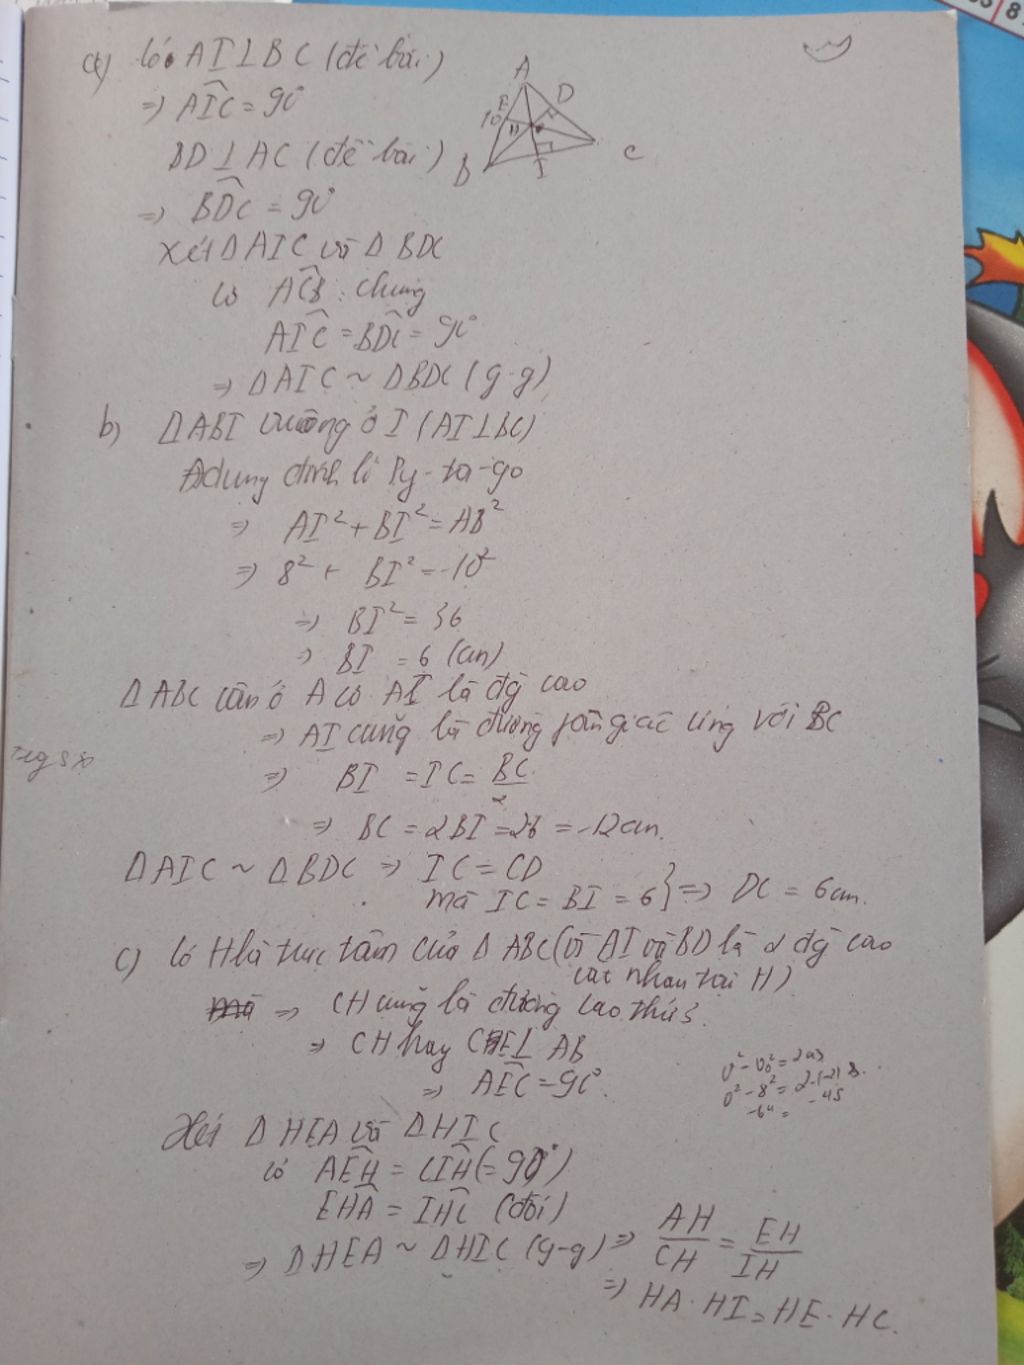 a) Có AI⊥BC (đề bài)
⇒ AIC = 90°
BD⊥AC (đề bài)
⇒ BDC = 90°
Xét Δ AIC và Δ BDC
có ACB : chung
AIC = BDC = 90°
⇒ Δ AIC ~ ΔBDC (g.g)
A
D
E
10
H
B
I
C
b) ΔABI vuông ở I (AI⊥BC)
Adung định lí Py-ta-go
⇒ AI² + BI² = AB²
⇒ 8² + BI² = 10²
⇒ BI² = 36
⇒ BI = 6 (cm)
Δ ABC cân ở A có AI là đg cao
⇒ AI cũng là đường phân giác ứng với BC
⇒ BI = IC = BC/2
⇒ BC = 2BI = 2.6 = 12cm.
Δ AIC ~ Δ BDC ⇒ IC = CD
mà IC = BI = 6 } ⇒ DC = 6cm.
c) Có H là trực tâm của Δ ABC (vì AI và BD là 2 đg cao
cắt nhau tại H)
mà ⇒ CH cũng là đường cao thứ 3.
⇒ CH hay CE⊥ AB
⇒ AEC = 90°.
v² - v₀² = 2as
0² - 8² = 2.(-2).s
Xét Δ HEA và Δ HIC
có AEH = CIH (= 90°)
EHA = IHC (đối)
⇒ Δ HEA ~ Δ HIC (g-g) ⇒ AH/CH = EH/IH
⇒ HA . HI = HE . HC.